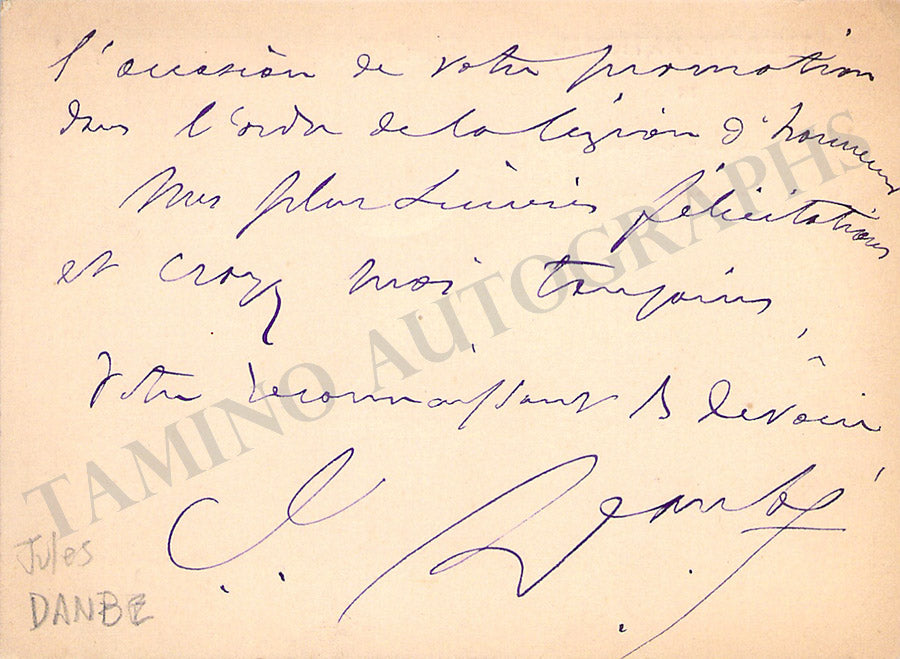 l'occasion de votre promotion
dans l'ordre de la légion d'honneur
Mes plus sincères félicitations
et croyez moi toujours,
Votre reconnaissant & dévoué
J. Danbé
Jules
DANBE
TAMINO AUTOGRAPHS